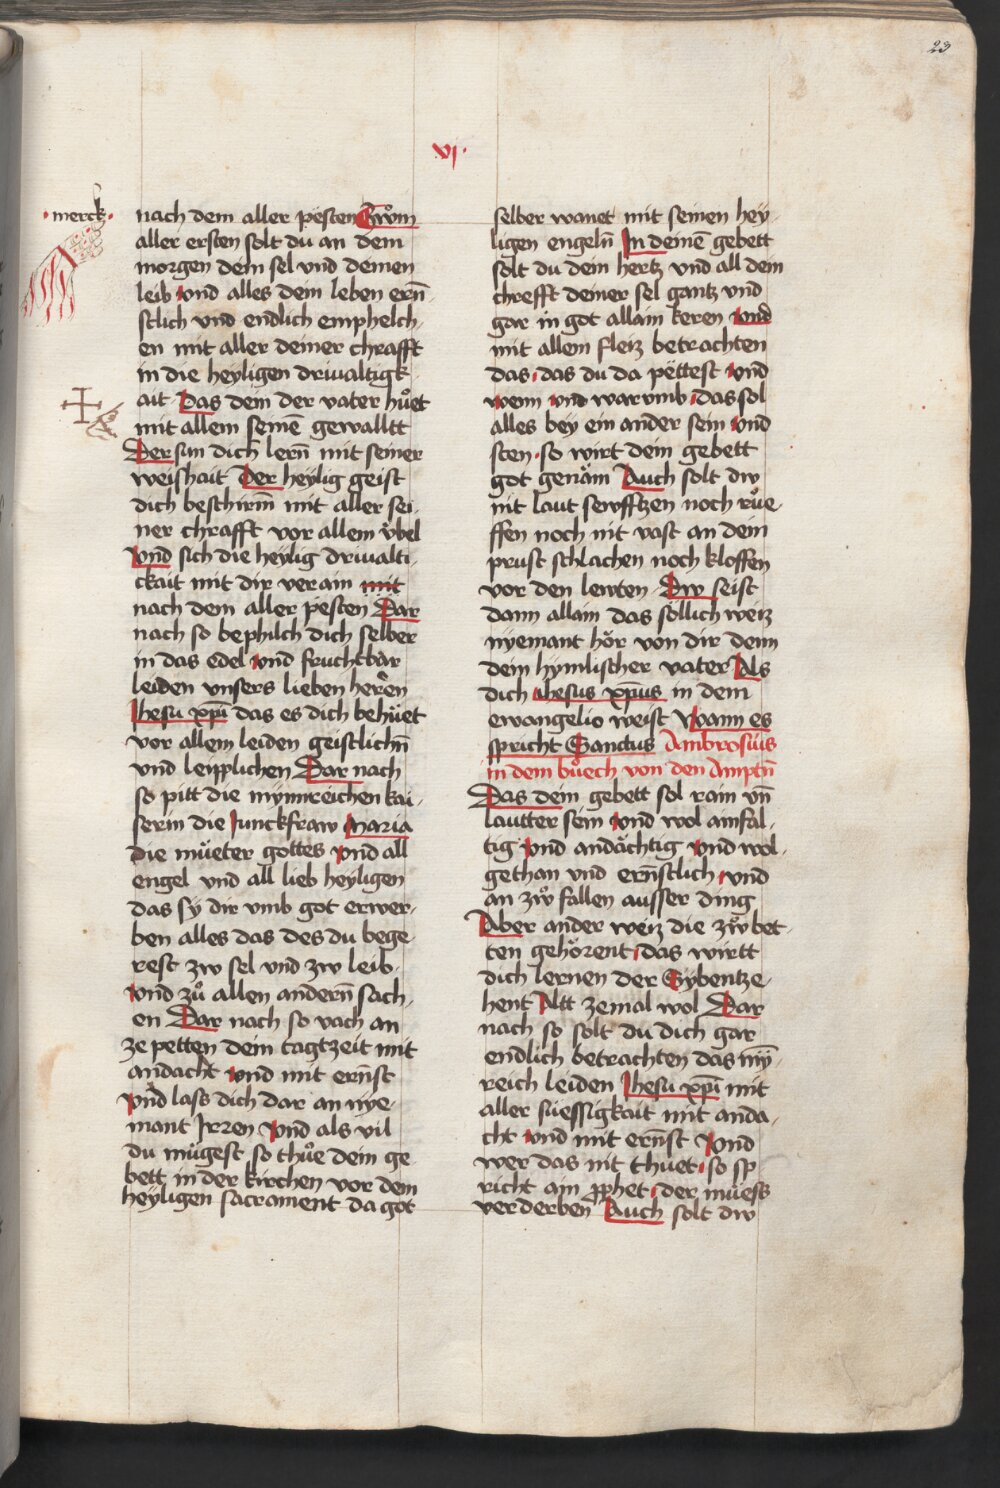 23
vj·
·merck·
nach dem aller pesten Czwͦm
aller ersten solt du an dem
morgen dein sel vnd deinen
leib vnd alles dein leben ern̄
stlich vnd endlich emphelch
en mit aller deiner chrafft
in die heyligen driualtigk
ait Das dein der vater huͤet
mit allem seinē gewalltt
Der sun dich lern̄ mit seiner
weishait Der heylig geist
dich beschirm̄ mit aller sei
ner chrafft vor allem vͤbel
vnd sich die heylig driualti
ckait mit dir verain mit
nach dem aller pesten Dar
nach so bephilch dich selber
in das edel vnd fruchtbar
leiden vnsers lieben heren
Jhesu xp̄i das es dich behuͤet
vor allem leiden geistlichn̄
vnd leipplichen Dar nach
so pitt die mynnreichen kai
serin die Junckfraw Maria
die muͤeter gottes vnd all
engel vnd all lieb heyligen
das sy dir vmb got erwer
ben alles das des du bege
rest zw sel vnd zw leib
vnd zuͦ allen andern̄ sach
en Dar nach so vach an
ze petten dein tagtzeit mit
andacht vnd mit ernst
vnd lass dich dar an nye
mant Irren vnd als vil
du muͤgest so thuͤe dein ge
bett in der kirchen vor dem
heyligen sacrament da got
selber wanet mit seinen hey
ligen engeln̄ In deinē gebett
solt du dein hertz vnd all dein
chrefft deiner sel gantz vnd
gar in got allain keren vnd
mit allem fleiz betrachten
das das du da pettest vnd
wem vnd warumb das sol
alles bey ein ander sein vnd
sten so wirt dein gebett
got genäm Auch solt dw
nit laut sewfftzen noch ruͤe
ffen noch nit vast an dein
prust schlachen noch kloffen
vor den lewten Dw seist
dann allain das sollich weiz
nyemant hör von dir denn
dein hymlischer vater Als
dich Jhesus xp̄us in dem
ewangelio weist Wann es
spricht Sanctus Ambrosius
in dem buͦech von den Amptn̄
Das dein gebett sol rain vn̄
lautter sein vnd wol ainfal
tig vnd andächtig vnd wol
gethan vnd ern̄stlich vnd
an zwͦ fallen ausser ding
Aber ander weiz die zwͦ bet
ten gehörent das wirtt
dich lernen der Sybentze
hent Altt zemal wol Dar
nach so solt du dich gar
endlich betrachten das mȳ
reich leiden Jhesu xp̄i mit
aller suessigkait mit anda
cht vnd mit ernst vnd
wer das nit thuet so sp
richt ain prophet der muͤess
verderben Auch solt dw